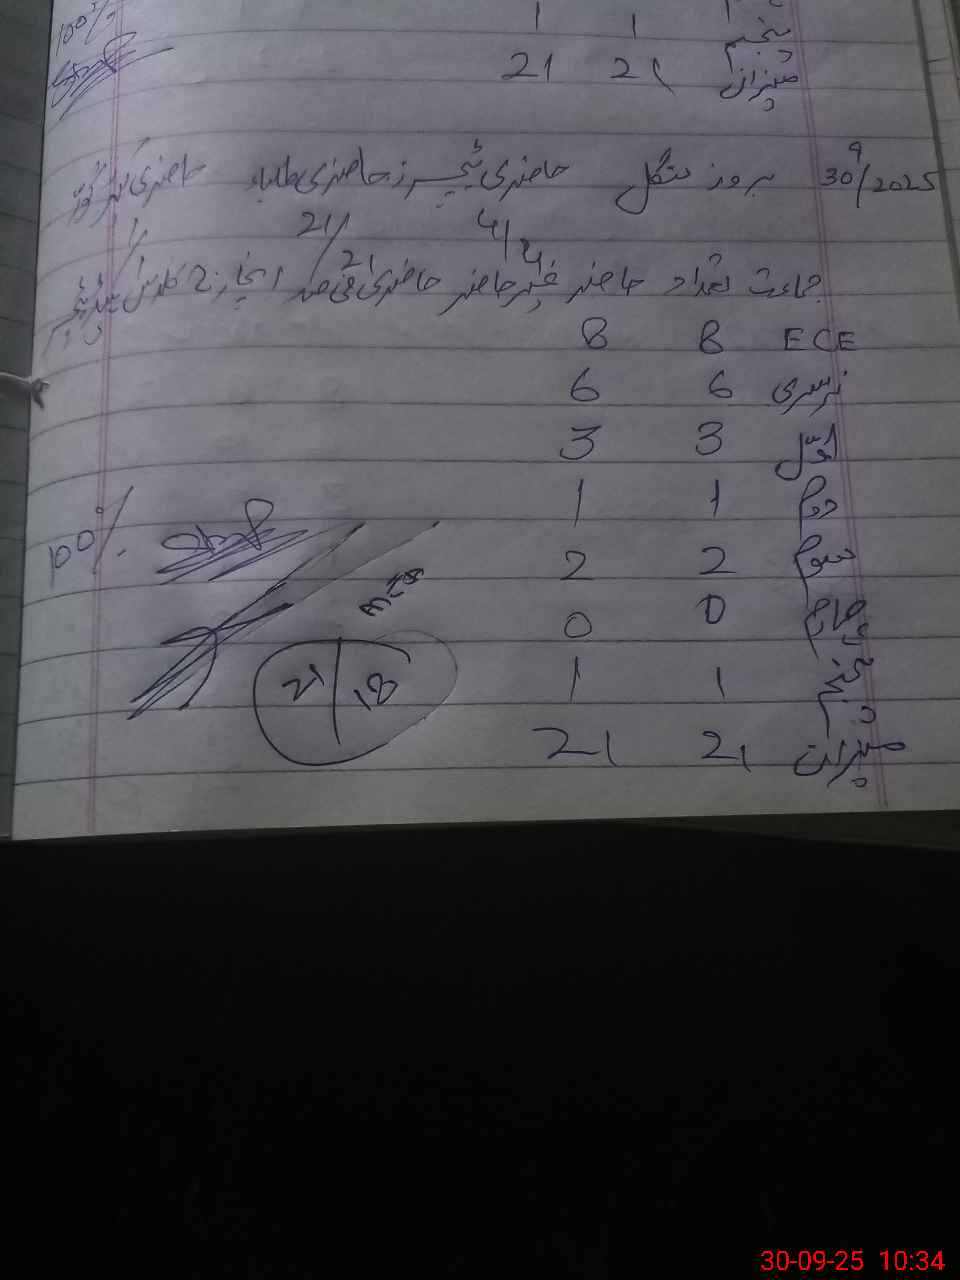 پنجم 1 1 100%
میزان 21 21
30/9/2025 بروز منگل حاضری ٹیچرز 4/4 حاضری طلباء 21/21 حاضری 1/1
جماعت تعداد حاضر غیر حاضر حاضری فی صد انچارج کلاس ٹیچر
ECE 8 8
نرسری 6 6
اول 3 3
دوم 1 1
سوم 2 2 100%
چہارم 0 0
پنجم 1 1 21 | 18
میزان 21 21
30-09-25 10:34